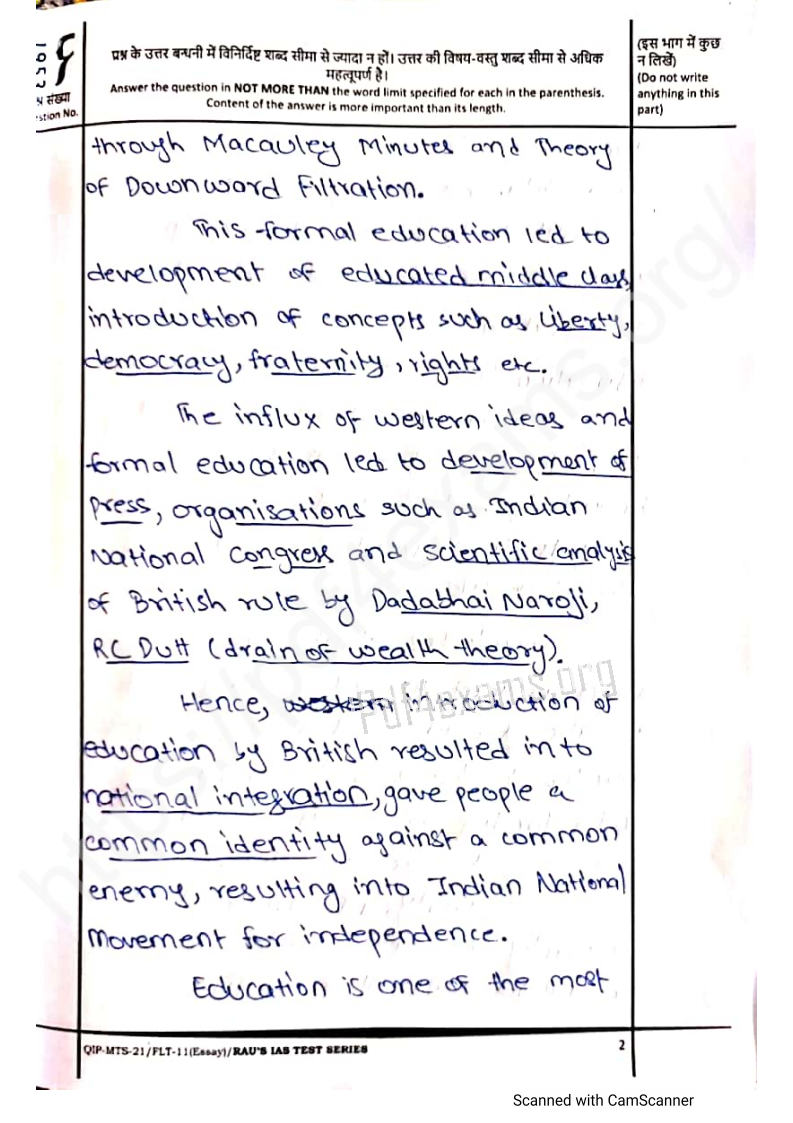 प्रश्न के उत्तर बन्धनी में विनिर्दिष्ट शब्द सीमा से ज्यादा न हों। उत्तर की विषय-वस्तु शब्द सीमा से अधिक
महत्वपूर्ण है।
Answer the question in NOT MORE THAN the word limit specified for each in the parenthesis.
Content of the answer is more important than its length.
(इस भाग में कुछ
न लिखें)
(Do not write
anything in this
part)
संख्या
stion No.
through Macauley Minutes and Theory
of Downward Filtration.
This formal education led to
development of educated middle class,
introduction of concepts such as liberty,
democracy, fraternity, rights etc.
The influx of western ideas and
formal education led to development of
press, organisations such as Indian
National Congress and scientific analysis
of British rule by Dadabhai Naroji,
RC Dutt (drain of wealth theory).
Hence, western introduction of
education by British resulted in to
national integration, gave people a
common identity against a common
enemy, resulting into Indian National
Movement for independence.
Education is one of the most
QIP-MTS-21/FLT-11(Essay)/RAU'S IAS TEST SERIES
2
Pdf4exams.org
https://pdf4exams.org/
Scanned with CamScanner